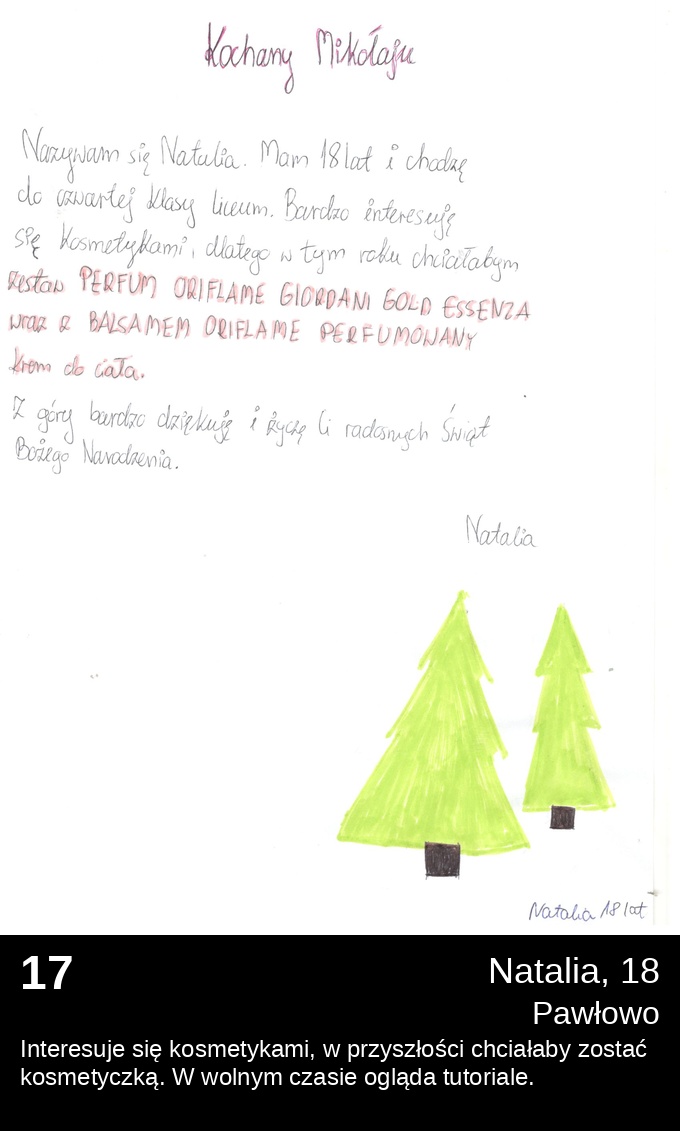 Kochany Mikołaju
Nazywam się Natalia. Mam 18 lat i chodzę
do czwartej klasy liceum. Bardzo interesuję
się kosmetykami, dlatego w tym roku chciałabym
zestaw PERFUM ORIFLAME GIORDANI GOLD ESSENZA
wraz z BALSAMEM ORIFLAME PERFUMOWANY
krem do ciała.
Z góry bardzo dziękuję i życzę Ci radosnych Świąt
Bożego Narodzenia.
Natalia
Natalia 18 lat
17
Natalia, 18
Pawłowo
Interesuje się kosmetykami, w przyszłości chciałaby zostać
kosmetyczką. W wolnym czasie ogląda tutoriale.